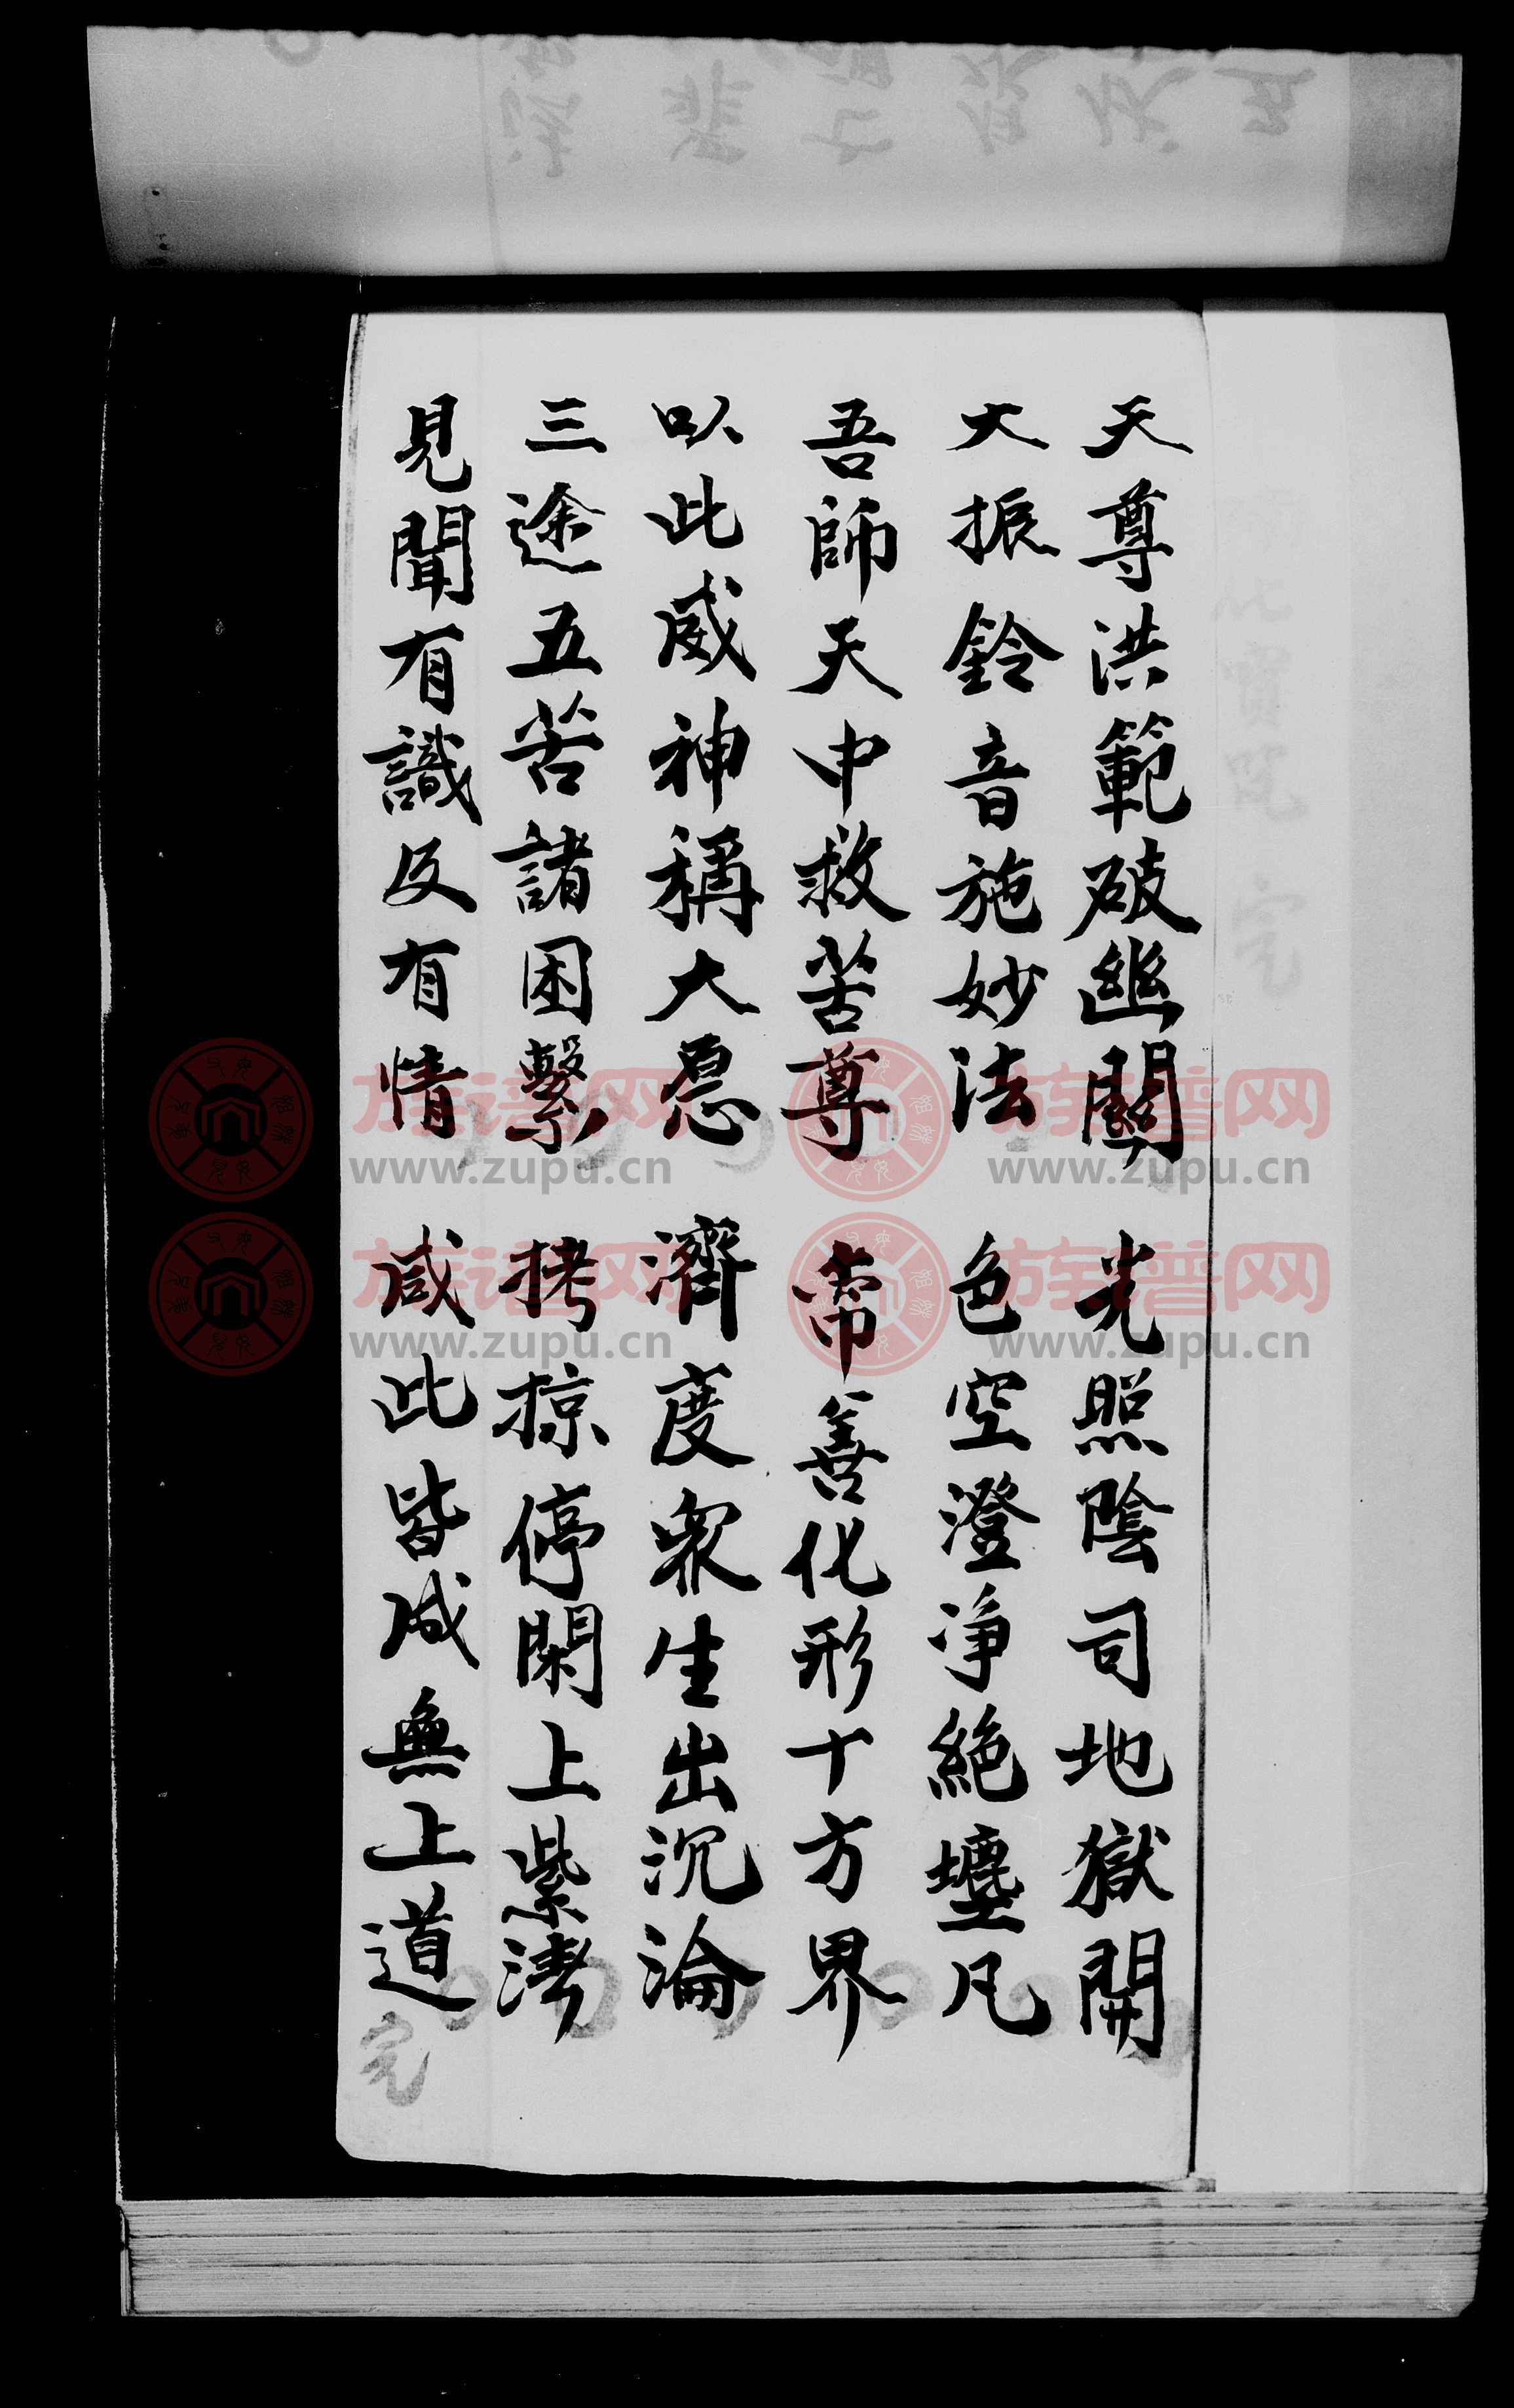 天尊洪範破幽關 光照陰司地獄開
大振鈴音施妙法 色空澄淨絕塵凡
吾師天中救苦尊 常善化形十方界
以此威神稱大愿 濟度眾生出沉淪
三途五苦諸困繫 拷掠停閑上紫
見聞有識及有情 咸此皆成無上道
完
族谱网
www.zupu.cn
族谱网
www.zupu.cn
族谱网
www.zupu.cn
族谱网
www.zupu.cn